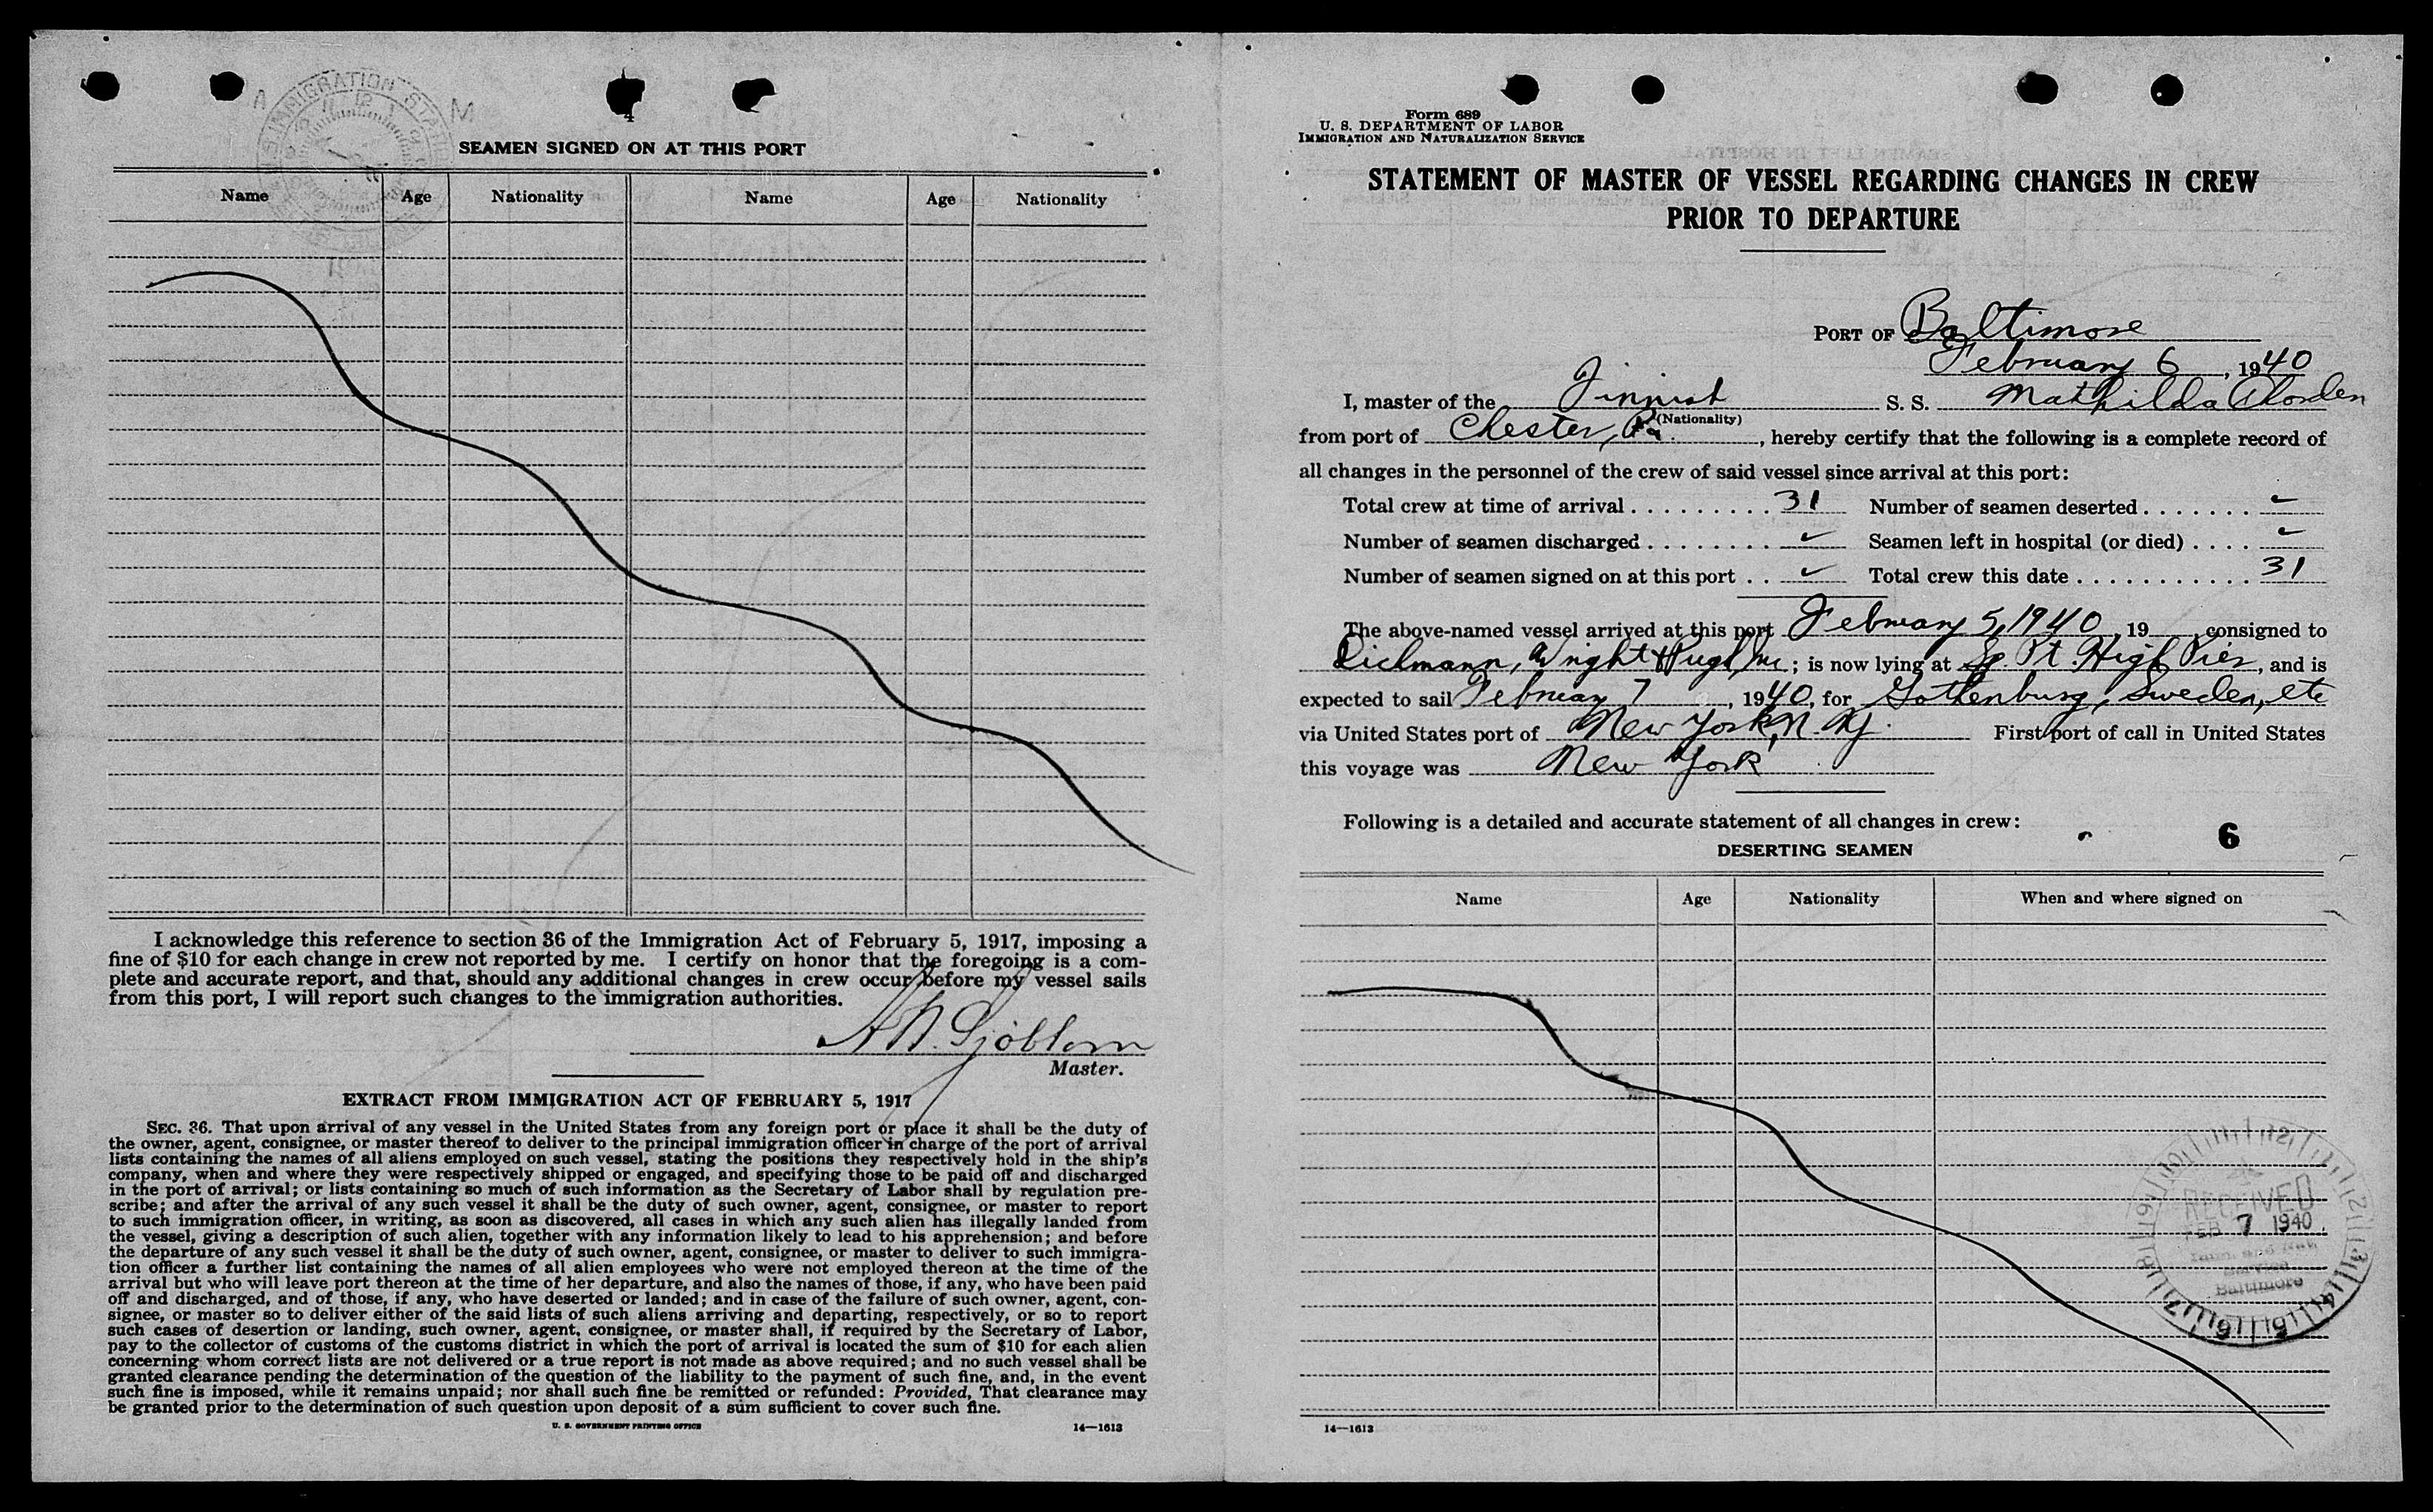 SEAMEN SIGNED ON AT THIS PORT
Name Age Nationality Name Age Nationality
I acknowledge this reference to section 36 of the Immigration Act of February 5, 1917, imposing a
fine of $10 for each change in crew not reported by me. I certify on honor that the foregoing is a com-
plete and accurate report, and that, should any additional changes in crew occur before my vessel sails
from this port, I will report such changes to the immigration authorities.
Sjöblom
Master.
EXTRACT FROM IMMIGRATION ACT OF FEBRUARY 5, 1917
SEC. 36. That upon arrival of any vessel in the United States from any foreign port or place it shall be the duty of
the owner, agent, consignee, or master thereof to deliver to the principal immigration officer in charge of the port of arrival
lists containing the names of all aliens employed on such vessel, stating the positions they respectively hold in the ship's
company, when and where they were respectively shipped or engaged, and specifying those to be paid off and discharged
in the port of arrival; or lists containing so much of such information as the Secretary of Labor shall by regulation pre-
scribe; and after the arrival of any such vessel it shall be the duty of such owner, agent, consignee, or master to report
to such immigration officer, in writing, as soon as discovered, all cases in which any such alien has illegally landed from
the vessel, giving a description of such alien, together with any information likely to lead to his apprehension; and before
the departure of any such vessel it shall be the duty of such owner, agent, consignee, or master to deliver to such immigra-
tion officer a further list containing the names of all alien employees who were not employed thereon at the time of the
arrival but who will leave port thereon at the time of her departure, and also the names of those, if any, who have been paid
off and discharged, and of those, if any, who have deserted or landed; and in case of the failure of such owner, agent, con-
signee, or master so to deliver either of the said lists of such aliens arriving and departing, respectively, or so to report
such cases of desertion or landing, such owner, agent, consignee, or master shall, if required by the Secretary of Labor,
pay to the collector of customs of the customs district in which the port of arrival is located the sum of $10 for each alien
concerning whom correct lists are not delivered or a true report is not made as above required; and no such vessel shall be
granted clearance pending the determination of the question of the liability to the payment of such fine, and, in the event
such fine is imposed, while it remains unpaid; nor shall such fine be remitted or refunded: Provided, That clearance may
be granted prior to the determination of such question upon deposit of a sum sufficient to cover such fine.
U. S. GOVERNMENT PRINTING OFFICE 14—1613
Form 689
U. S. DEPARTMENT OF LABOR
IMMIGRATION AND NATURALIZATION SERVICE
STATEMENT OF MASTER OF VESSEL REGARDING CHANGES IN CREW
PRIOR TO DEPARTURE
PORT OF Baltimore
February 6, 1940
I, master of the Finnish S. S. Mathilda Thorden
(Nationality)
from port of Chester, Pa., hereby certify that the following is a complete record of
all changes in the personnel of the crew of said vessel since arrival at this port:
Total crew at time of arrival 31 Number of seamen deserted
Number of seamen discharged Seamen left in hospital (or died)
Number of seamen signed on at this port Total crew this date 31
The above-named vessel arrived at this port February 5, 1940, 19 consigned to
Wright & Pugh, Inc; is now lying at Pt. High Pier, and is
expected to sail February 7, 1940, for Gothenburg, Sweden, etc
via United States port of New York, N. Y. First port of call in United States
this voyage was New York
Following is a detailed and accurate statement of all changes in crew:
6
DESERTING SEAMEN
Name Age Nationality When and where signed on
RECEIVED
FEB 7 1940
Imm. and Nat.
Service
Baltimore
14—1613